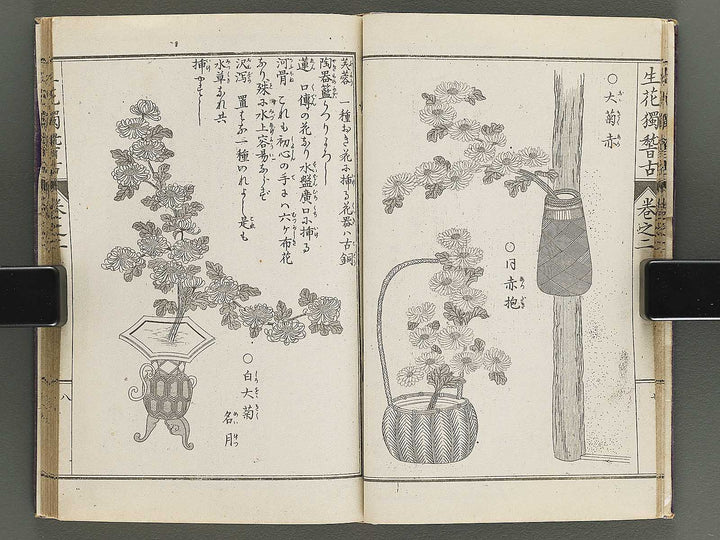 生花獨稽古 巻之二
○大菊 赤
○同 赤抱
芙蓉 一種おき花に挿る花器ハ古銅
陶器籃うつりよろし
蓮 口傳の花なり水盤廣口に挿る
河骨 これも初心の手にハ六ケ布花
なり殊に水上容易ならず
沢泻 置き一種いれよし是も
水草なれ共
挿やすし
○白大菊
名月
八